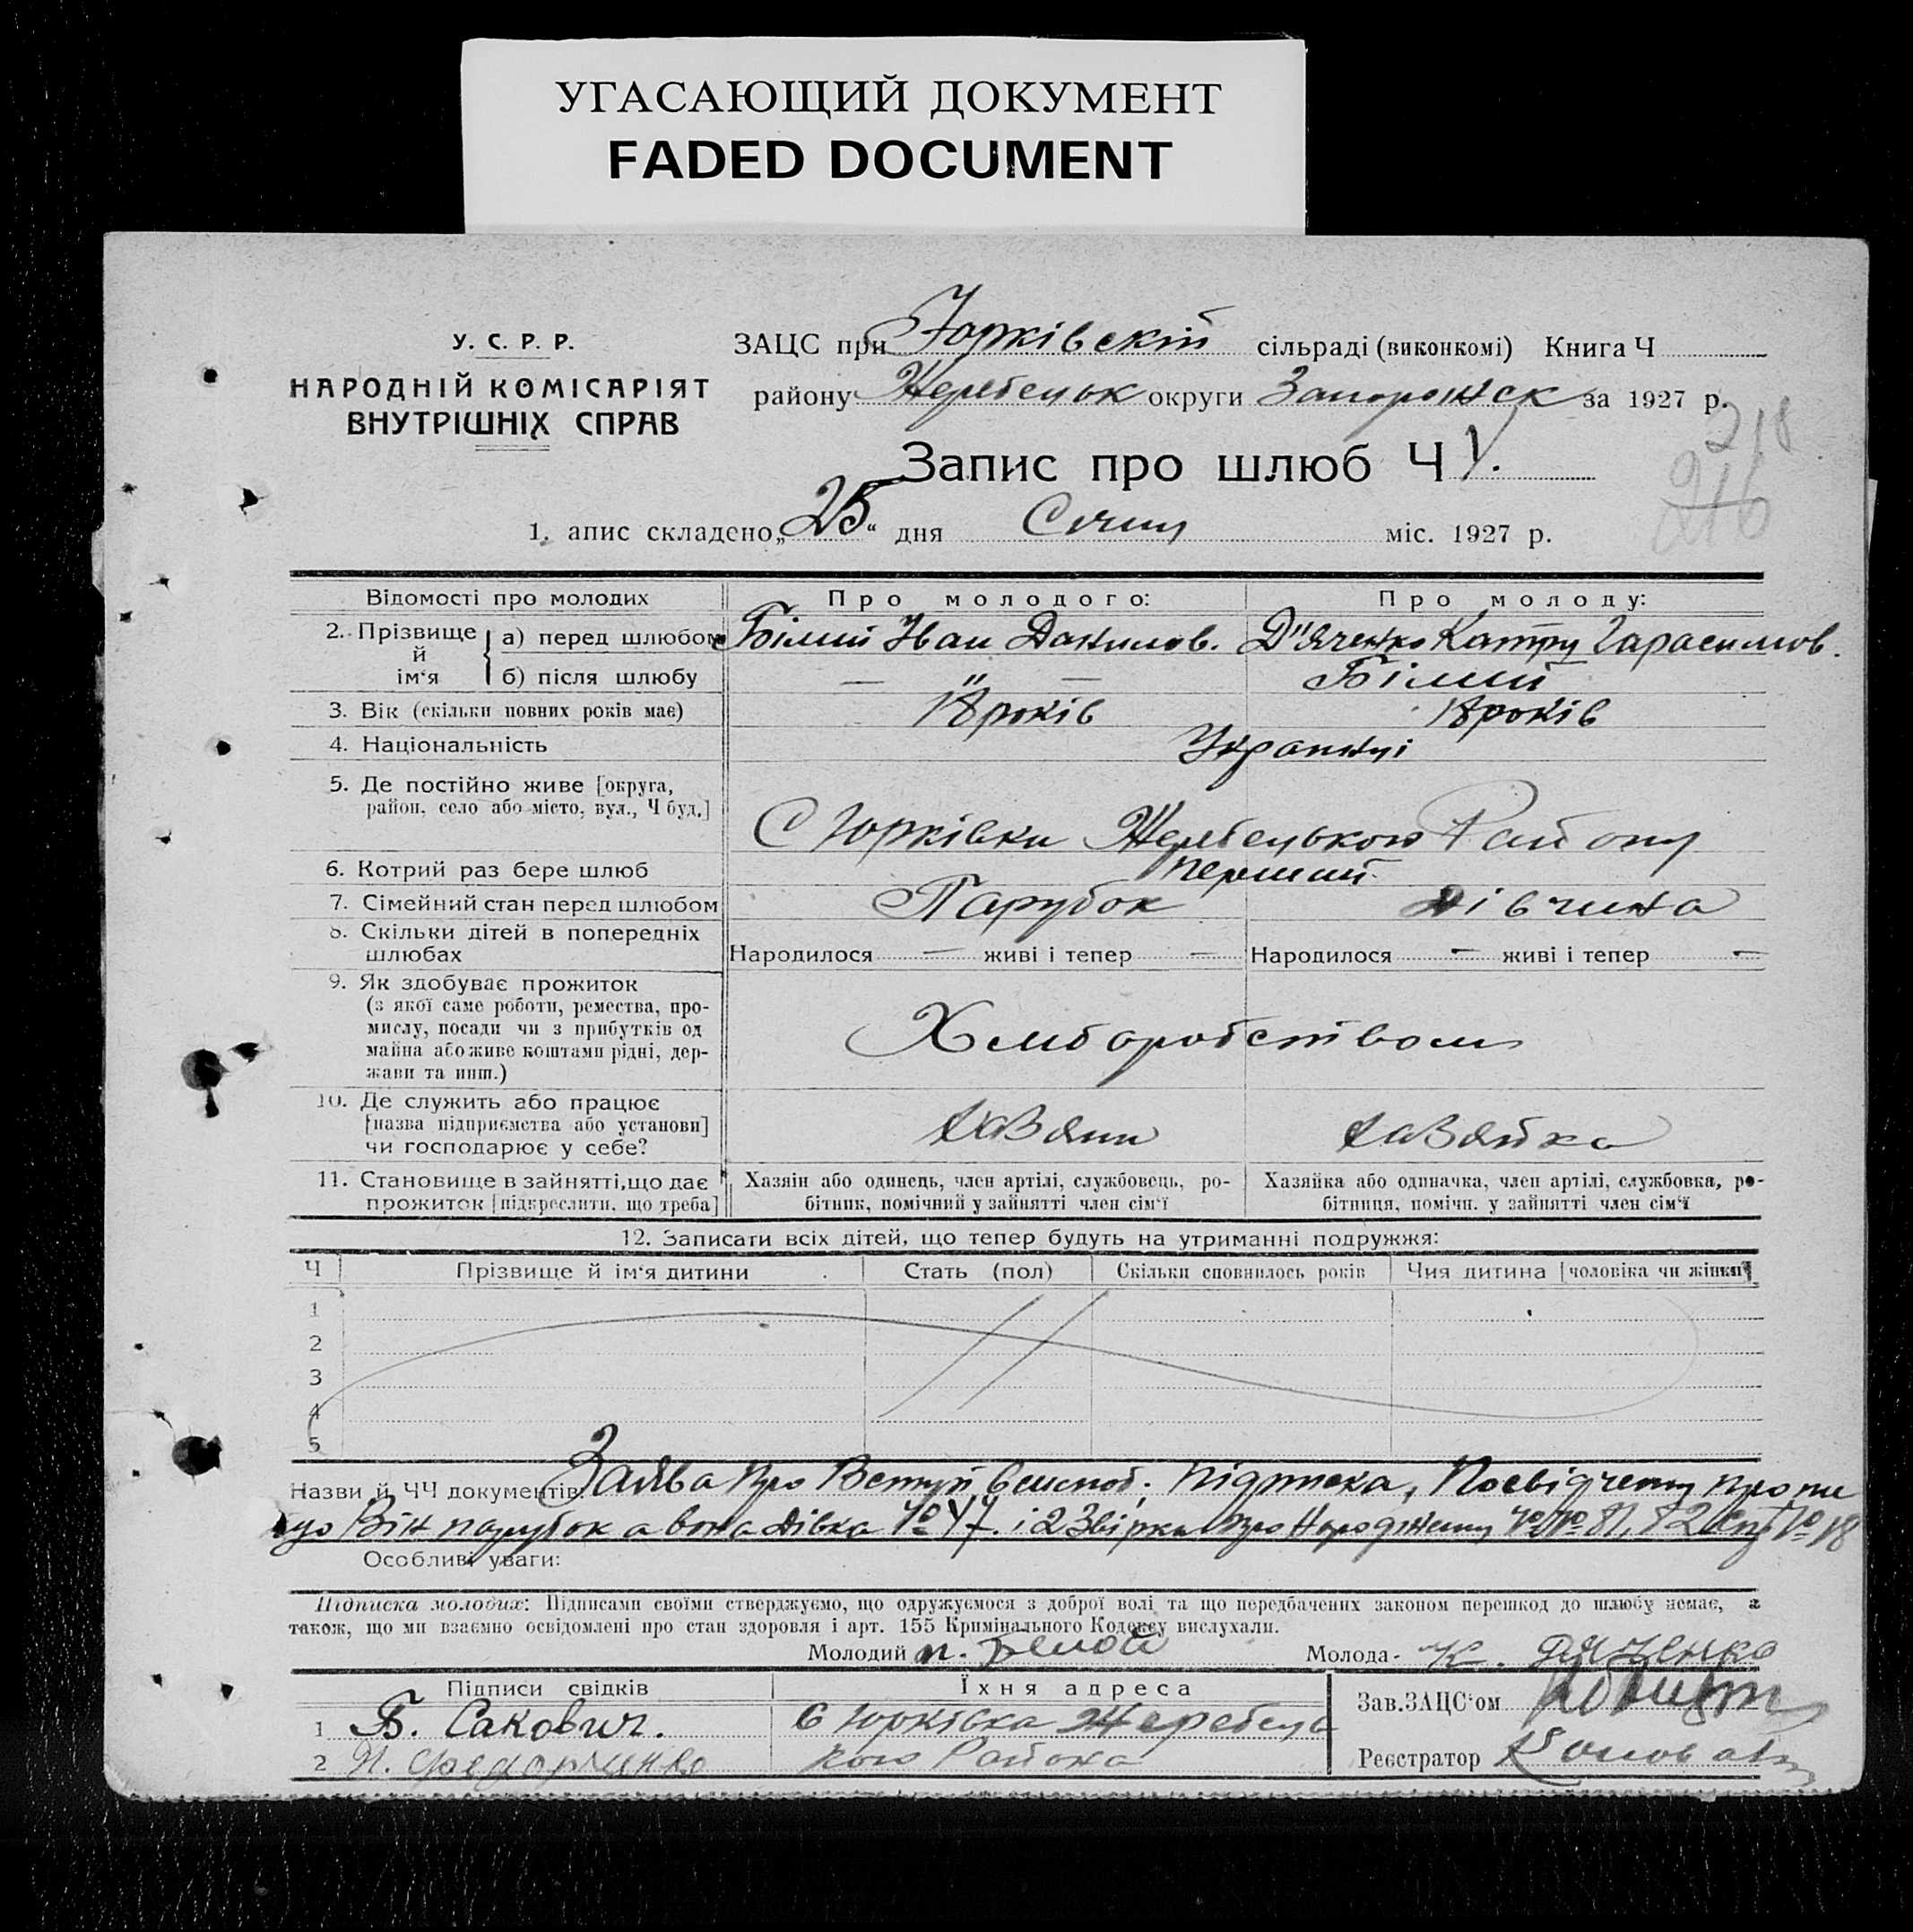 УГАСАЮЩИЙ ДОКУМЕНТ
FADED DOCUMENT
У. С. Р. Р.
НАРОДНІЙ КОМІСАРІЯТ
ВНУТРІШНІХ СПРАВ
ЗАЦС при Юрківскій сільраді (виконкомі) Книга Ч
району Жеребецьк округи Запорожск за 1927 р.
218
Запис про шлюб Ч
216
1. апис складено „25“ дня Січня міс. 1927 р.
Відомості про молодих Про молодого: Про молоду:
2. Прізвище й ім‘я а) перед шлюбом Білий Іван Данилов. Д"яченко Катру Гарасимов.
б) після шлюбу — " — Білий
3. Вік (скільки повних років має) 18 років 18 років
4. Національність Українці
5. Де постійно живе [округа,
район, село або місто, вул., Ч буд.]
С Юрківки Жеребецького Району
6. Котрий раз бере шлюб перший
7. Сімейний стан перед шлюбом Парубок дівчина
8. Скільки дітей в попередніх
шлюбах Народилося — живі і тепер — Народилося — живі і тепер —
9. Як здобуває прожиток
(з якої саме роботи, ремества, про-
мислу, посади чи з прибутків од
майна або живе коштами рідні, дер-
жави та инш.)
Хліборобством
10. Де служить або працює
[назва підприємства або установи]
чи господарює у себе?
11. Становище в зайнятті, що дає
прожиток [підкреслити, що треба]
Хазяін або одинець, член артілі, службовець, ро-
бітник, помічний у зайнятті член сім‘ї
Хазяйка або одиначка, член артілі, службовка, ро-
бітниця, помічн. у зайнятті член сім‘ї
12. Записати всіх дітей, що тепер будуть на утриманні подружжя:
Ч Прізвище й ім‘я дитини Стать (пол) Скільки сповнилось років Чия дитина [чоловіка чи жінки]
1
2
3
4
5
Назви й ЧЧ документів: Заява про Вступ підписка, Посвідчення про те
що Він парубок а вона дівка № 47. і 2 Звірки про Народження №№ 81, 82 №18
Особливі уваги:
Підписка молодих: Підписами своїми стверджуємо, що одружуємося з доброї волі та що передбачених законом перешкод до шлюбу немає, а
також, що ми взаємно освідомлені про стан здоровля і арт. 155 Кримінального Кодексу вислухали.
Молодий Белой Молода - К. Дяченко
Підписи свідків Їхня адреса
Зав. ЗАЦС‘ом
1 Б. Сакович. С Юрківка Жеребець
2 кого Района
Реєстратор